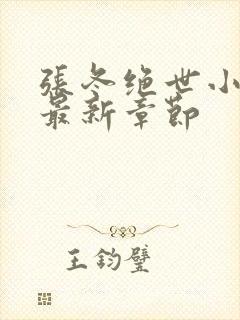 張冬绝世小
最新章節
王鈞璧